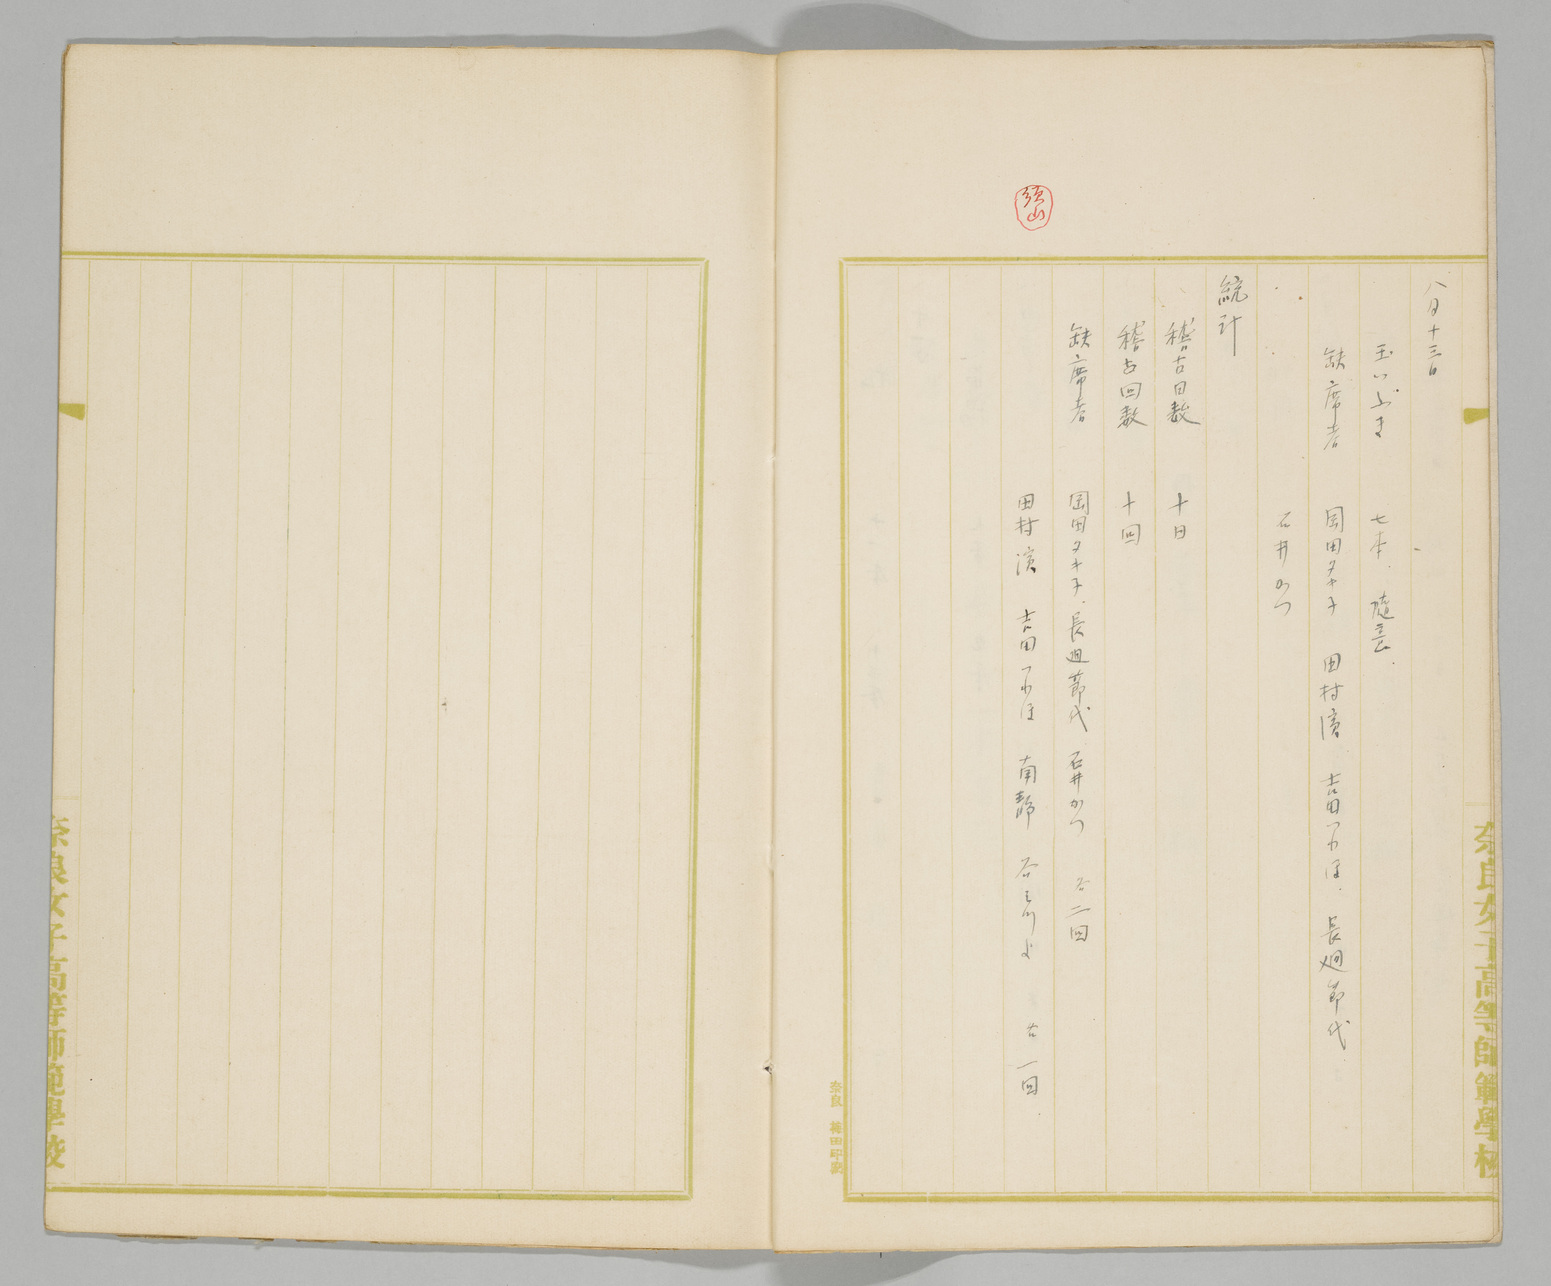 八月十三日
玉いぶき 七本、隨意、
缺席者 岡田タキ子 田村濱 吉田つね子、長廻節代
石井かつ
統計
稽古日数 十日
稽古回数 十回
缺席者 岡田タキ子、長廻節代 石井かつ 各二回
田村濱 吉田 南靜 各一回、
頭山
奈良女子高等師範學校
奈良女子高等師範學校